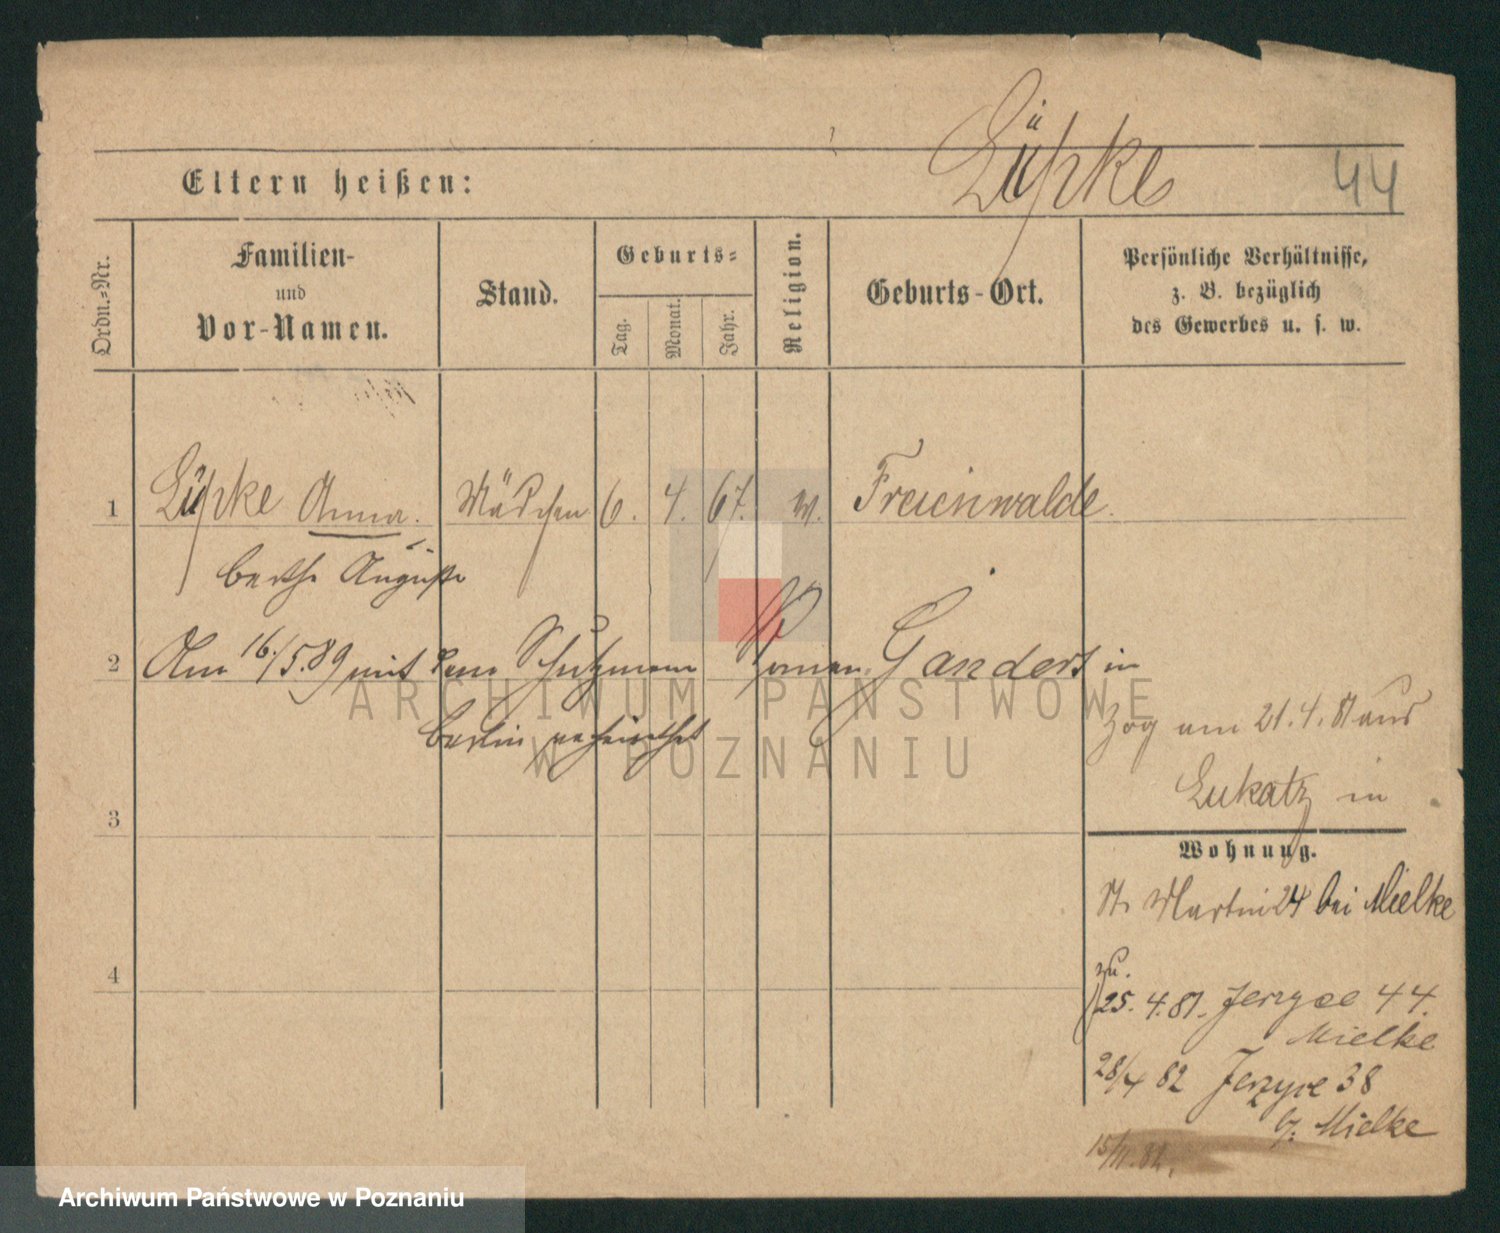 Lüpke
44
Eltern heißen:
Ordn.-Nr.
Familien-
und
Vor-Namen.
Stand.
Geburts-
Tag.
Monat.
Jahr.
Religion.
Geburts-Ort.
Persönliche Verhältnisse,
z. B. bezüglich
des Gewerbes u. s. w.
1 Lüpke Anna. Mädchen 6. 4. 67. Freienwalde.
Auguste
2 Am 16./5.89 mit dem Schutzmann Ganders in
Berlin verheirathet
ARCHIWUM PAŃSTWOWE
W POZNANIU
Zog am 21.4.81 aus
Lukatz in
3
Wohnung.
St. Martin 24 bei Mielke
4
zu.
25. 4. 81. Jerzyce 44.
Mielke
28/4 82 Jerzyce 38
b. Mielke
Archiwum Państwowe w Poznaniu